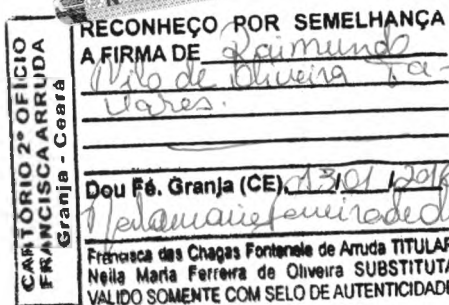 CARTÓRIO 2º OFÍCIO
FRANCISCA ARRUDA
Granja - Ceará
RECONHEÇO POR SEMELHANÇA
A FIRMA DE Raimundo
Nilo de Oliveira Ta-
vares.
Dou Fé. Granja (CE), 13/01/2016
Francisca das Chagas Fontenele de Arruda TITULAR
Neila Maria Ferreira de Oliveira SUBSTITUTA
VALIDO SOMENTE COM SELO DE AUTENTICIDADE